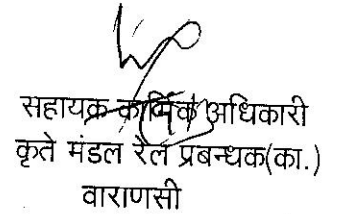 सहायक कार्मिक अधिकारी
कृते मंडल रेल प्रबन्धक(का.)
वाराणसी